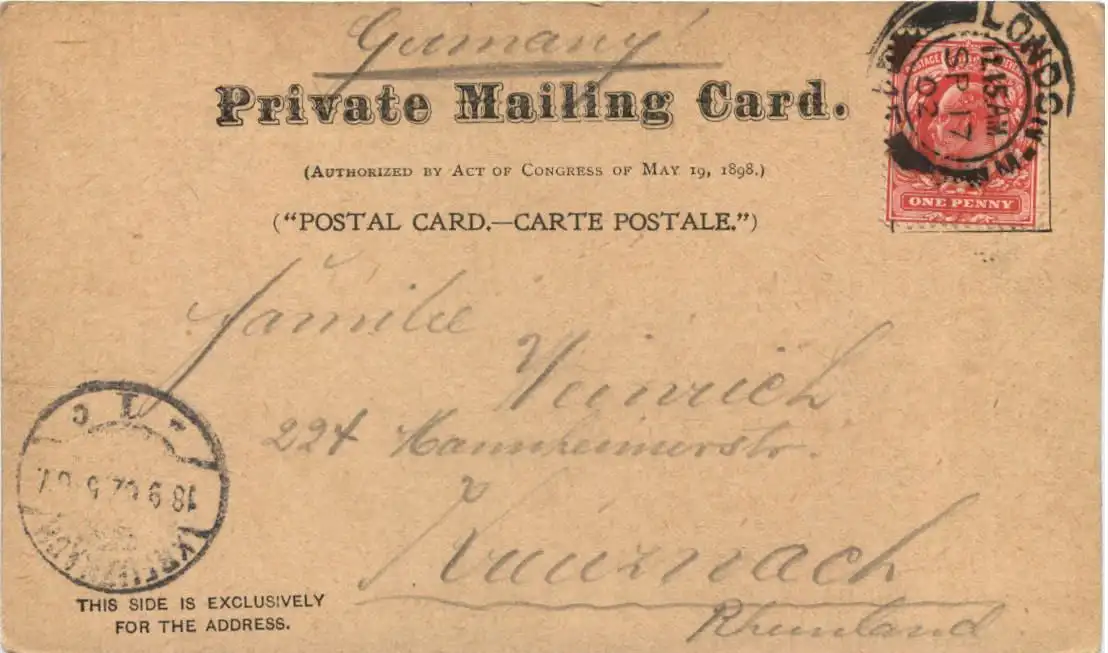 Germany
Private Mailing Card.
(AUTHORIZED BY ACT OF CONGRESS OF MAY 19, 1898.)
("POSTAL CARD.—CARTE POSTALE.")
LONDON
11.15 AM
SP 17
02
ONE PENNY
Familie
Heinrich
224 Mannheimerstr.
Kreuznach
Rheinland
KREUZNACH
18 9 02
THIS SIDE IS EXCLUSIVELY
FOR THE ADDRESS.